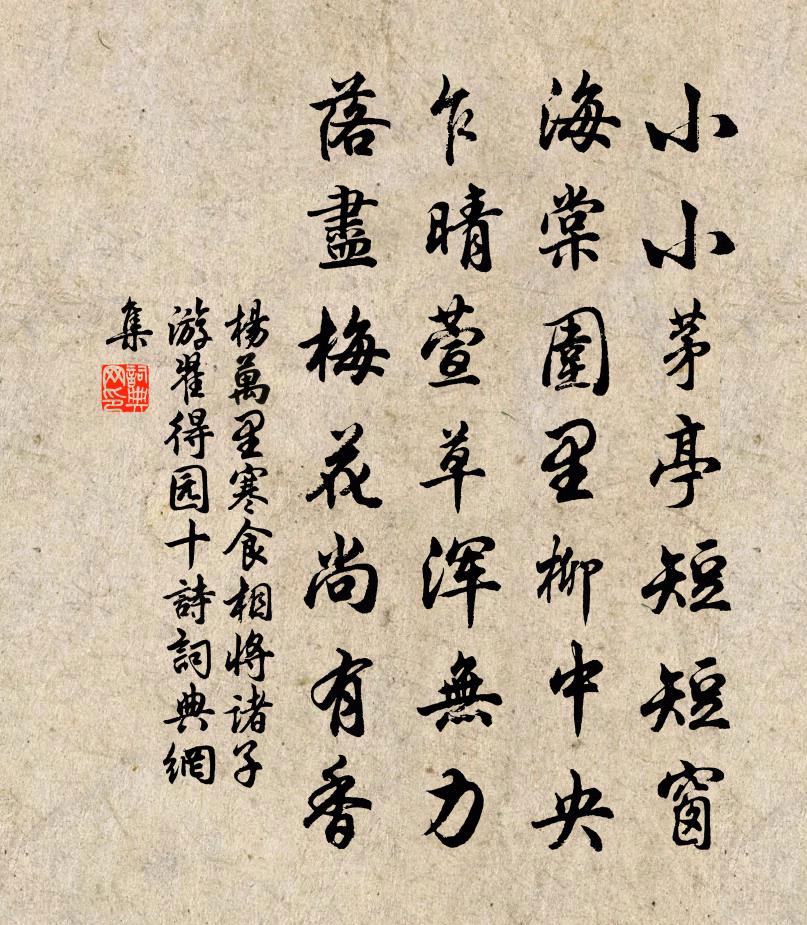 小小茅亭短短窗
海棠圍里柳中央
乍晴萱草浑無力
落盡梅花尚有香
楊萬里寒食相将诸子
游翟得园十詩詞典網
集
詞典
网印